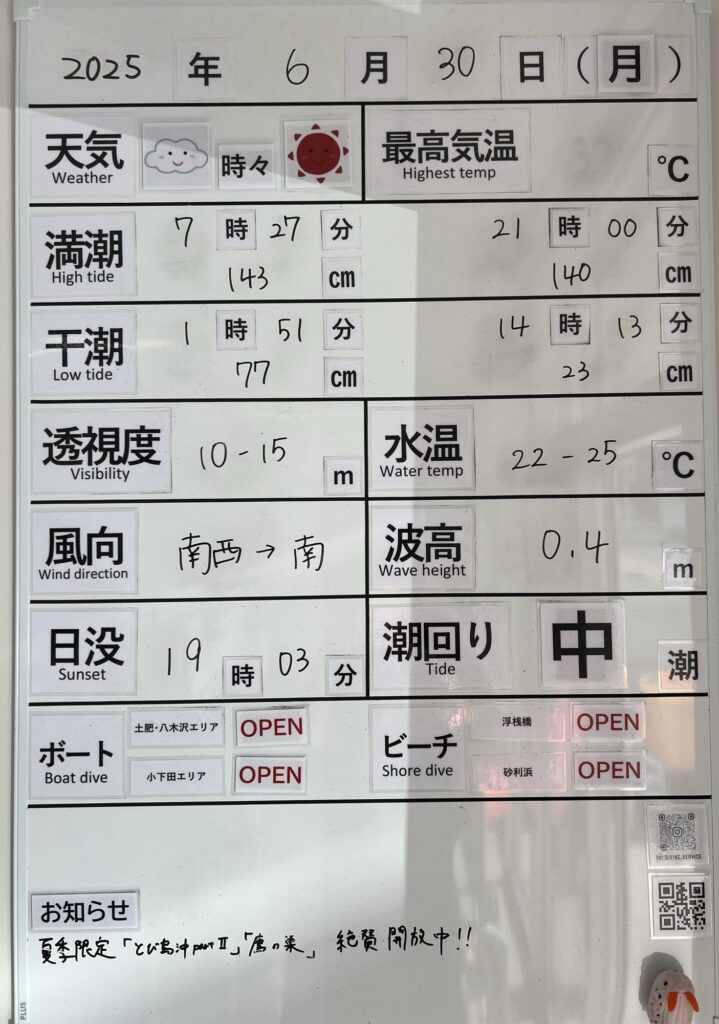 2025 年 6 月 30 日 (月)
天気 時々 最高気温 ℃
Weather Highest temp
満潮 7 時 27 分 21 時 00 分
High tide 143 cm 140 cm
干潮 1 時 51 分 14 時 13 分
Low tide 77 cm 23 cm
透視度 10-15 m 水温 22-25 ℃
Visibility Water temp
風向 南西→南 波高 0.4 m
Wind direction Wave height
日没 19 時 03 分 潮回り 中 潮
Sunset Tide
ボート 土肥・八木沢エリア OPEN ビーチ 浮桟橋 OPEN
Boat dive 小下田エリア OPEN Shore dive 砂利浜 OPEN
TOI.DIVING_SERVICE
お知らせ
夏季限定「とび島沖partⅡ」「鷹の巣」 絶賛開放中!!
PLUS